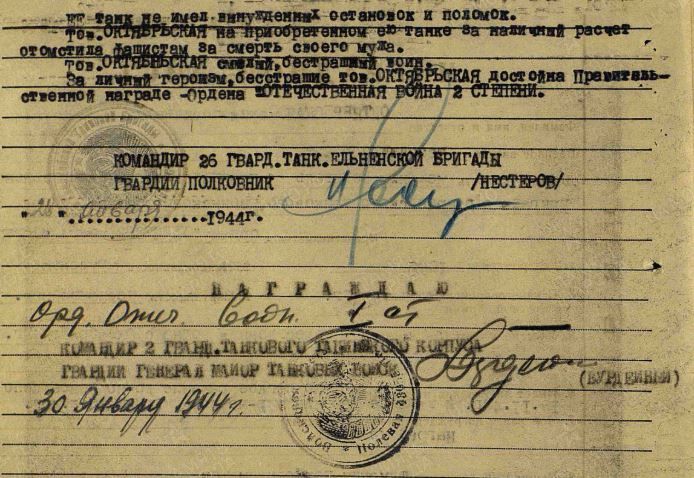 ЕЕ танк не имел винужденнИХ остановок и поломок.
Тов.ОКТЯБРЬСКАЯ на приобретенном ею танке за наличный расчет
отомстила фашистам за смерть своего мужа.
Тов.ОКТЯБРЬСКАЯ смелый,бестрашный воин.
За личный героизм,бесстрашие тов.ОКТЯБРЬСКАЯ достойна Правитель-
ственной награде -Ордена "ОТЕЧЕСТВЕННАЯ ВОЙНА 2 СТЕПЕНИ.
КОМАНДИР 26 ГВАРД.ТАНК.ЕЛЬНЕНСКОЙ БРИГАДЫ
ГВАРДИИ ПОЛКОВНИК /НЕСТЕРОВ/
"28" января 1944г.
НАГРАЖДАЮ
Орд. Отеч. Войн. I ст
КОМАНДИР 2 ГВАРД.ТАНКОВОГО ТАЦИНСКОГО КОРПУСА
ГВАРДИИ ГЕНЕРАЛ МАЙОР ТАНКОВЫХ ВОЙСК (БУРДЕЙНЫЙ)
30 Январу 1944г.
Полевая